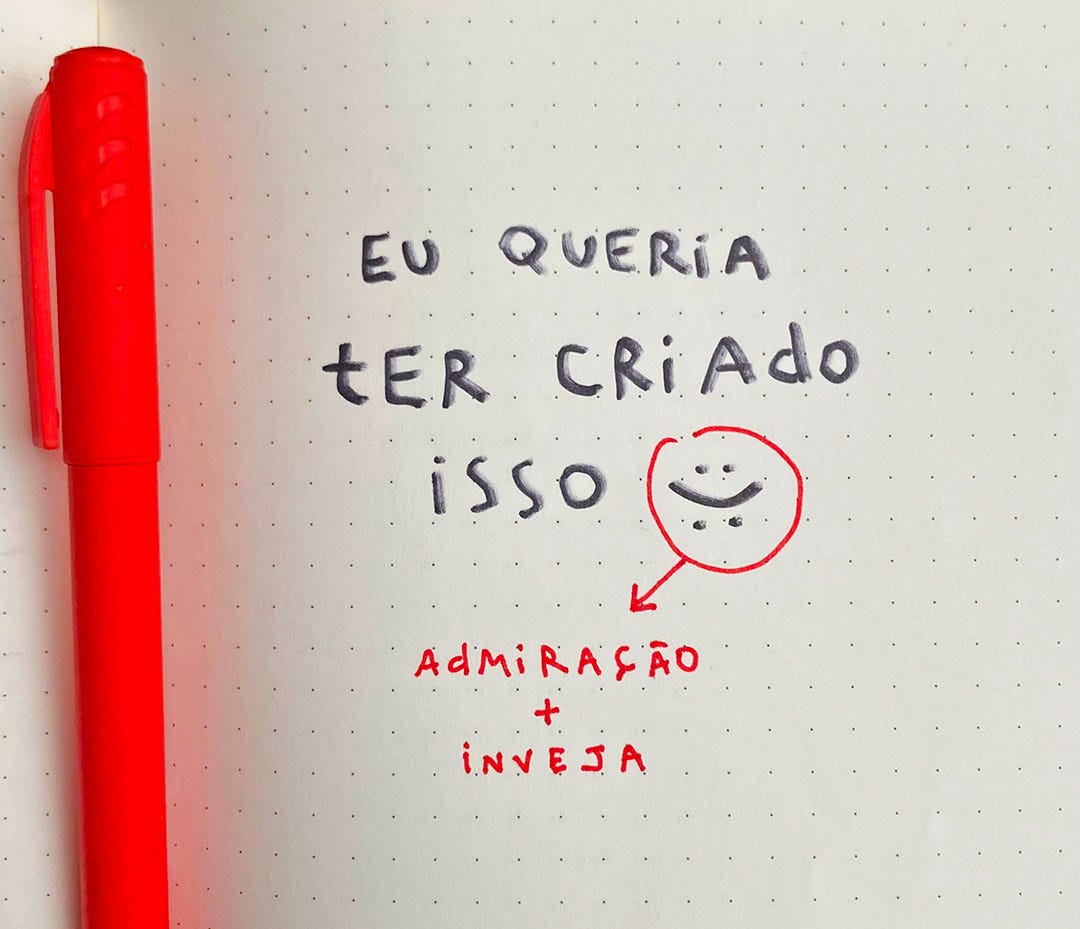 EU QUERiA
tER CRiAdO
iSSO
AdMiRAÇÃO
+
iNVEJA